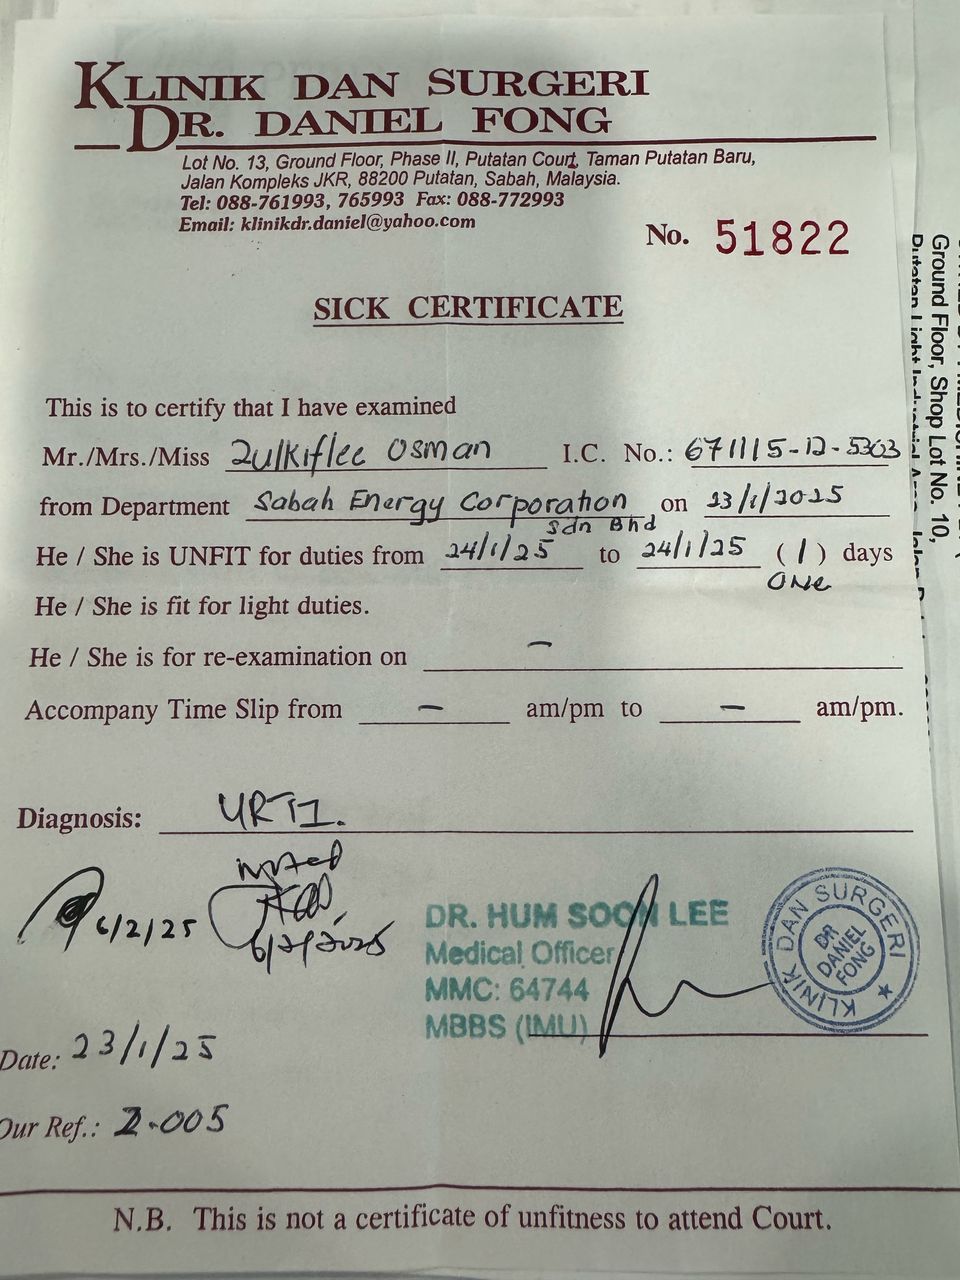 KLINIK DAN SURGERI
DR. DANIEL FONG
Lot No. 13, Ground Floor, Phase II, Putatan Court, Taman Putatan Baru,
Jalan Kompleks JKR, 88200 Putatan, Sabah, Malaysia.
Tel: 088-761993, 765993 Fax: 088-772993
Email: klinikdr.daniel@yahoo.com
No. 51822
SICK CERTIFICATE
This is to certify that I have examined
Mr./Mrs./Miss Zulkiflee Osman I.C. No.: 671115-12-5303
from Department Sabah Energy Corporation on 23/1/2025
Sdn Bhd
He / She is UNFIT for duties from 24/1/25 to 24/1/25 (1) days
One
He / She is fit for light duties.
He / She is for re-examination on –
Accompany Time Slip from – am/pm to – am/pm.
Diagnosis: URTI.
noted
6/2/25
6/2/2025
DR. HUM SOON LEE
Medical Officer
MMC: 64744
MBBS (IMU)
KLINIK DAN SURGERI
DR
DANIEL
FONG
Date: 23/1/25
Our Ref.: Z-005
N.B. This is not a certificate of unfitness to attend Court.
Ground Floor, Shop Lot No. 10,